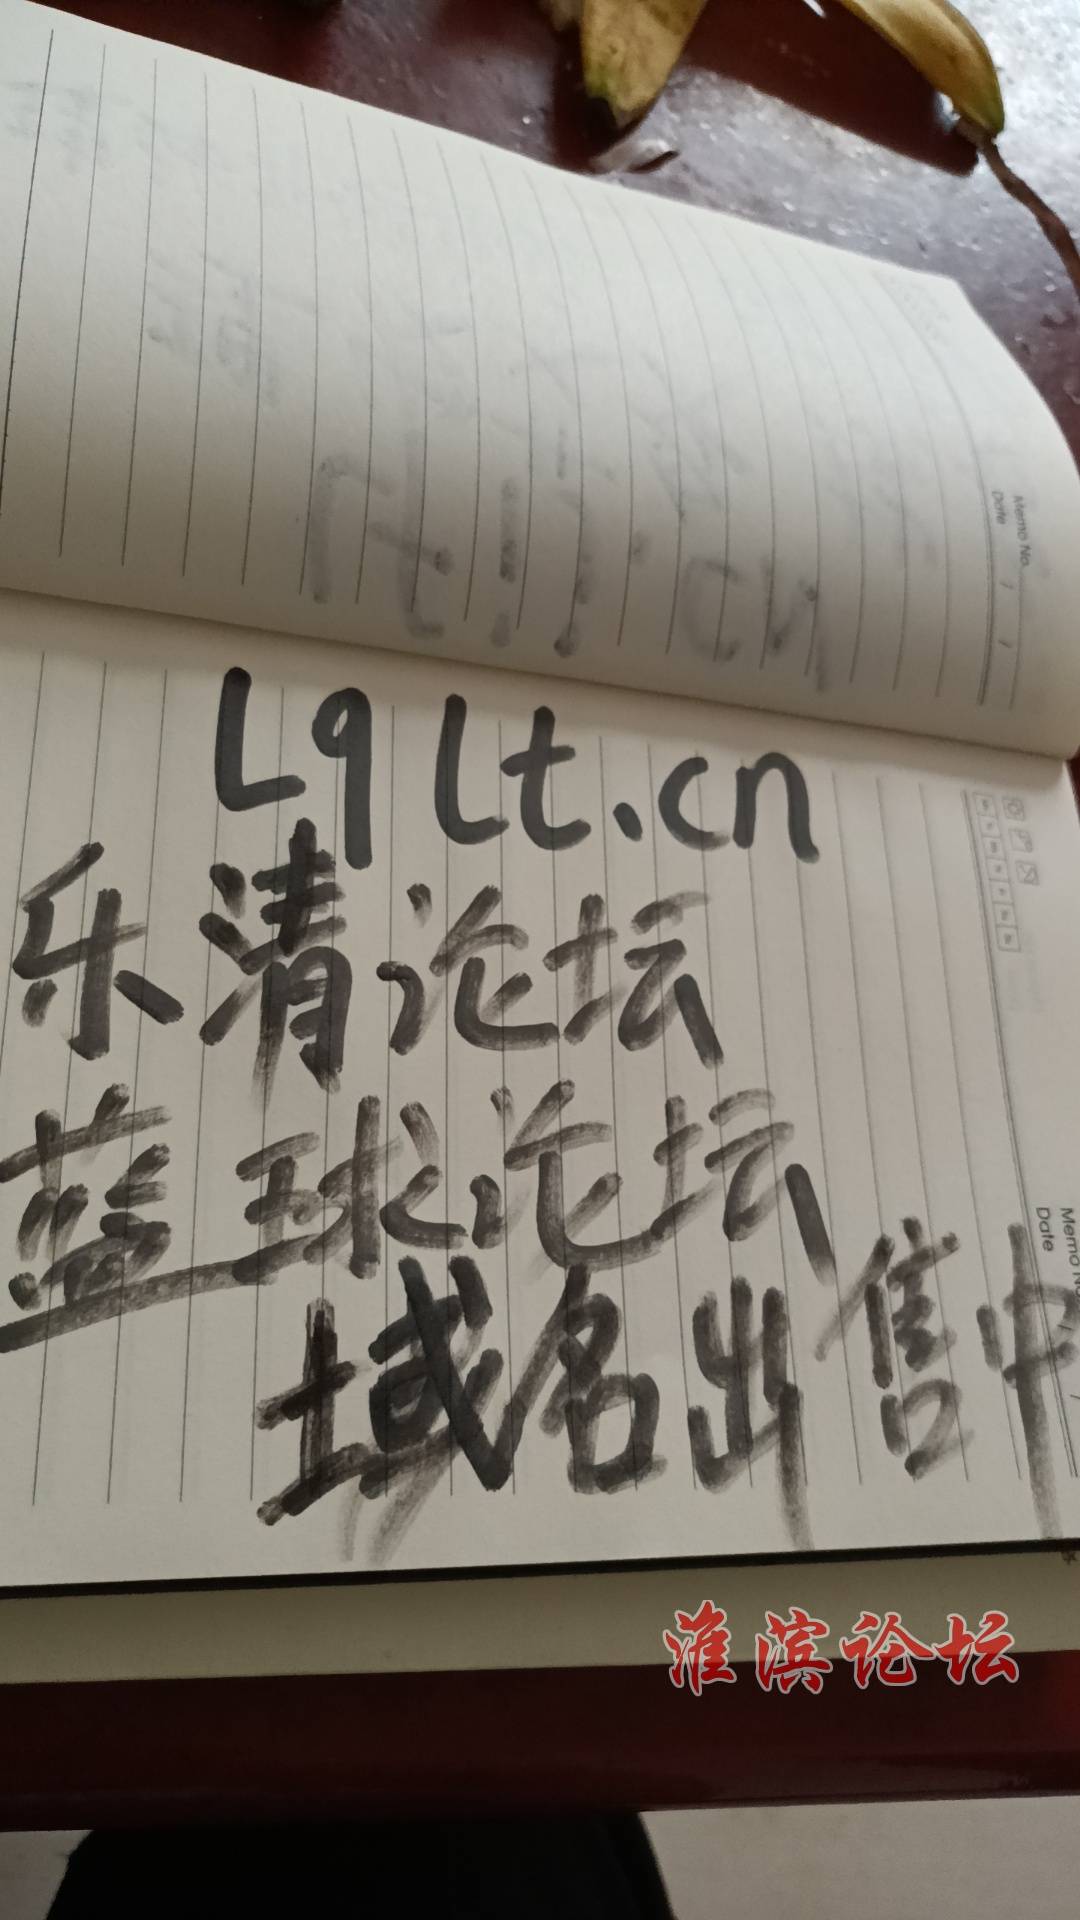 Lqlt.cn
乐清论坛
蓝球论坛
域名出售中
Memo No.
Date
Memo No.
Date
淮滨论坛